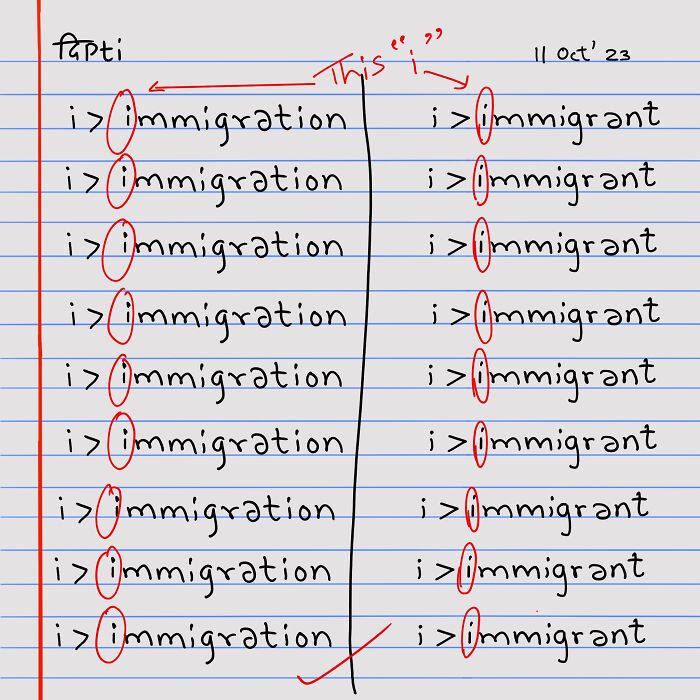 दिPti
11 Oct' 23
This "i"
i > immigration
i > immigration
i > immigration
i > immigration
i > immigration
i > immigration
i > immigration
i > immigration
i > immigration
i > immigrant
i > immigrant
i > immigrant
i > immigrant
i > immigrant
i > immigrant
i > immigrant
i > immigrant
i > immigrant